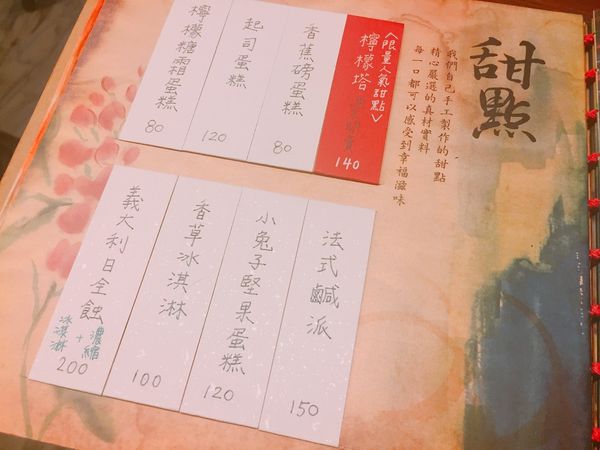 甜點
我們自己手工製作的甜點
精心嚴選的真材實料
每一口都可以感受到幸福滋味
<限量人氣甜點>
檸檬塔
140
香蕉磅蛋糕
80
起司蛋糕
120
檸檬糖霜蛋糕
80
法式鹹派
150
小兔子堅果蛋糕
120
香草冰淇淋
100
義大利日全蝕
濃縮
+
冰淇淋
200